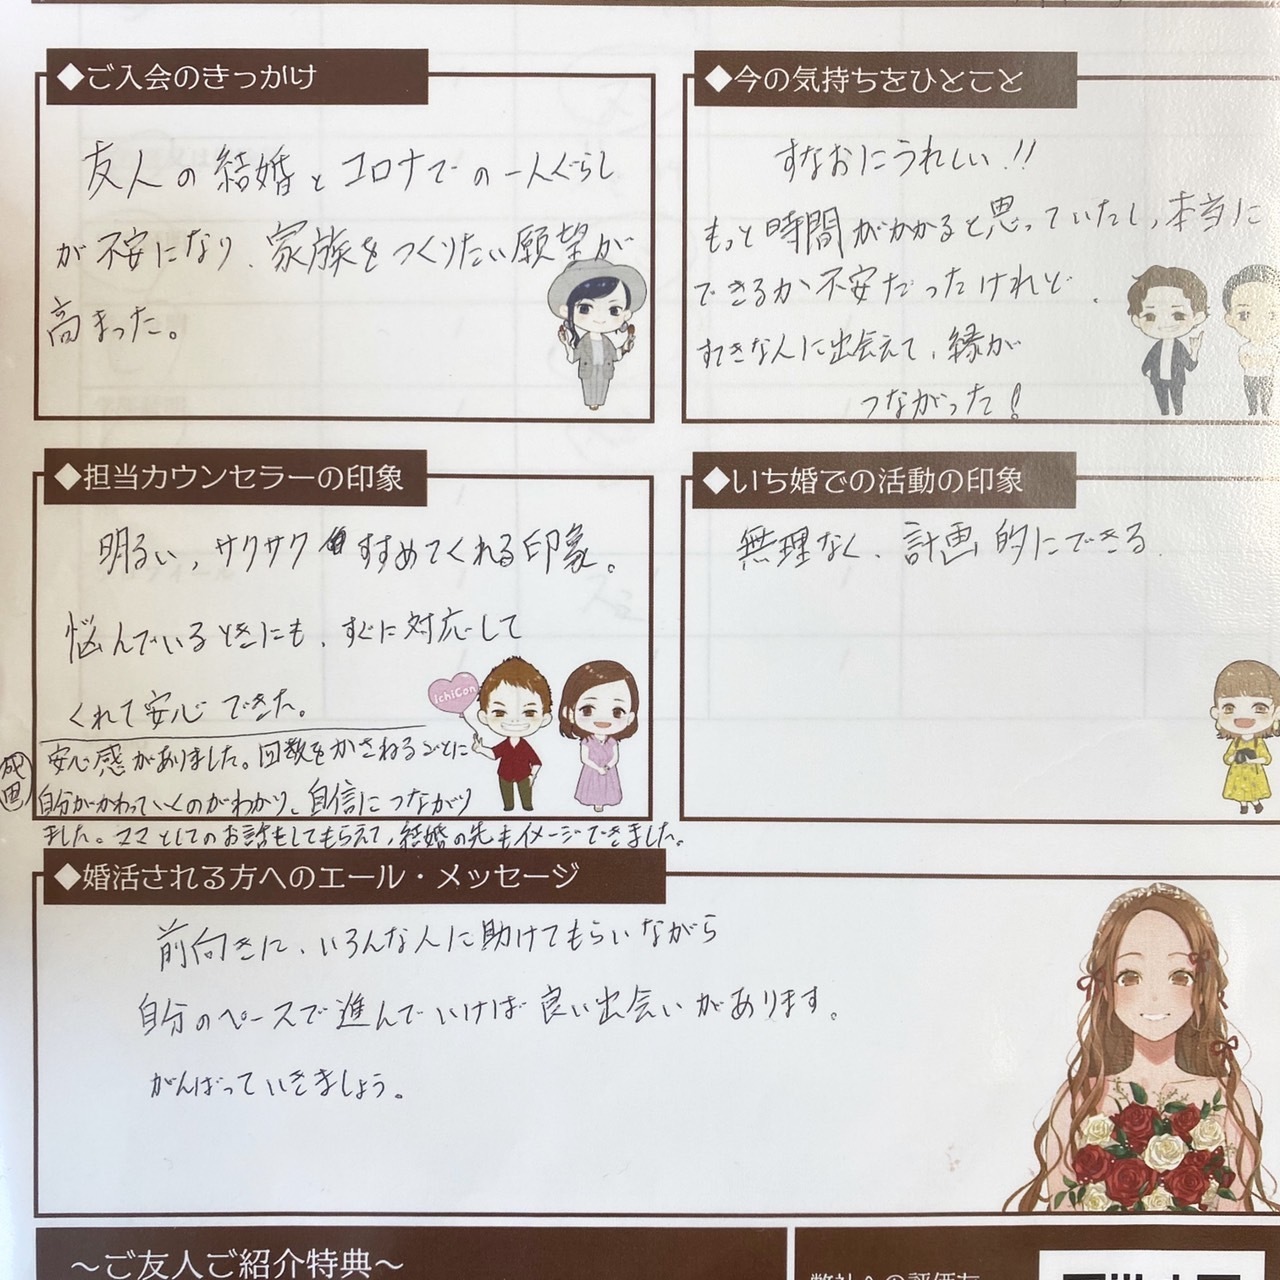 ◆ご入会のきっかけ
友人の結婚とコロナでの一人ぐらし
が不安になり、家族をつくりたい願望が
高まった。
◆今の気持ちをひとこと
すなおにうれしい!!
もっと時間がかかると思っていたし、本当に
できるか不安だったけれど、
すてきな人に出会えて、縁が
つながった!
◆担当カウンセラーの印象
明るい、サクサクすすめてくれる印象。
悩んでいるときにも、すぐに対応して
くれて安心できた。
IchiCon
成田
安心感がありました。回数をかさねるごとに
自分がかわっていくのがわかり、自信につながり
ました。ママとしてのお話もしてもらえて、結婚の先もイメージできました。
◆いち婚での活動の印象
無理なく、計画的にできる。
◆婚活される方へのエール・メッセージ
前向きに、いろんな人に助けてもらいながら
自分のペースで進んでいけば良い出会いがあります。
がんばっていきましょう。
〜ご友人ご紹介特典〜
弊社への評価を